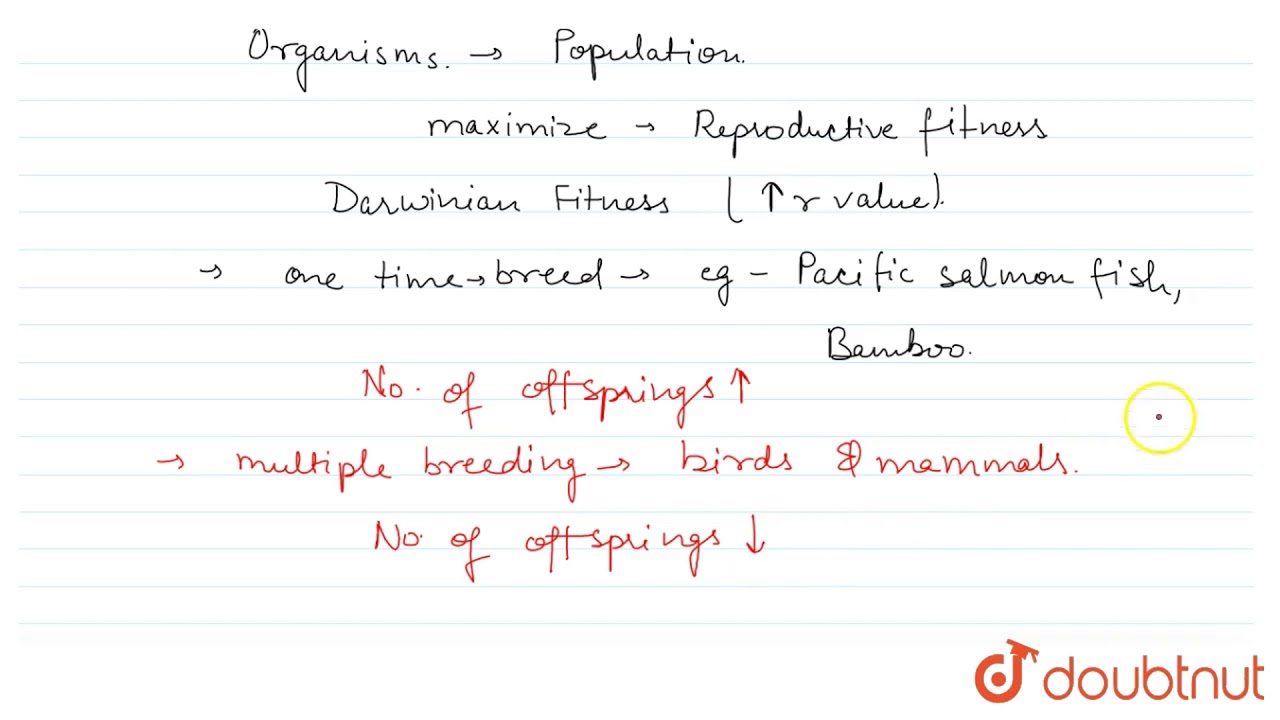 Organisms. → Population.
maximize → Reproductive fitness
Darwinian Fitness (↑ r value).
→ one time → breed → eg - Pacific salmon fish,
Bamboo.
No. of offsprings ↑
→ multiple breeding → birds & mammals.
No. of offsprings ↓
doubtnut